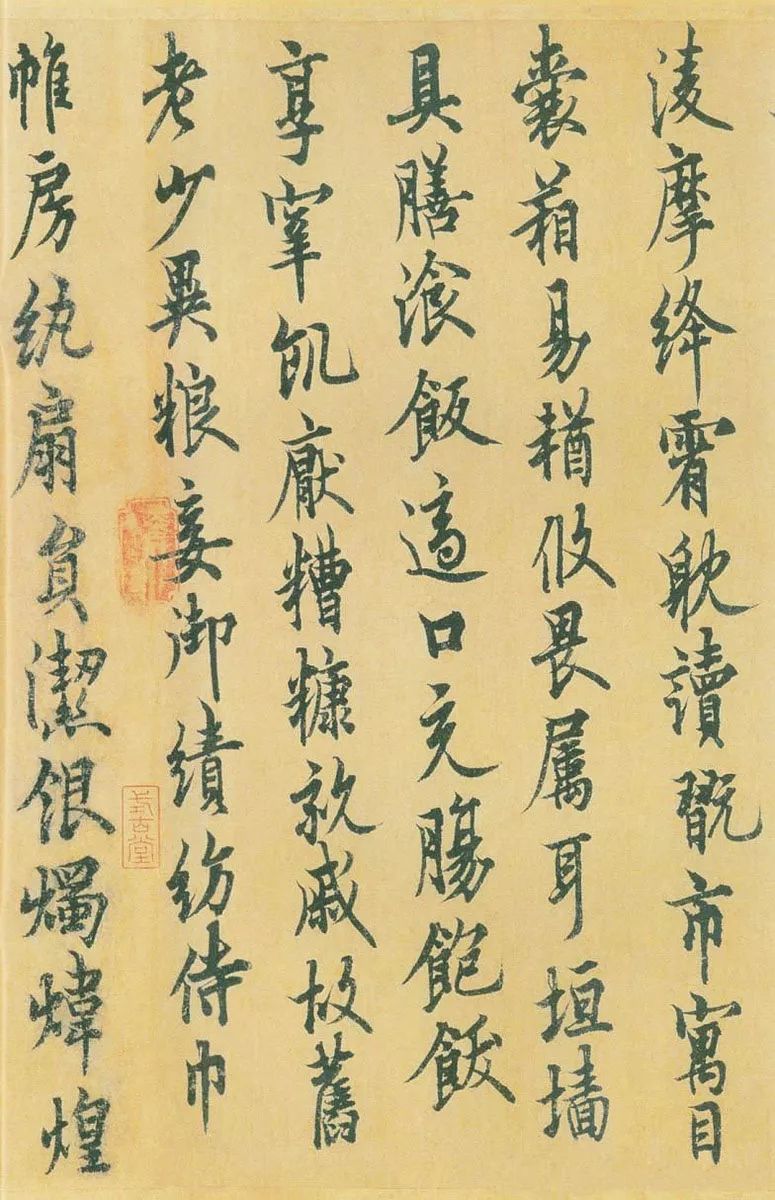 淩摩絳霄躭讀翫市寓目
囊葙易輶攸畏属耳垣墻
具膳湌飯適口充腸飽飫
享宰飢厭糟糠親戚故舊
老少異粮妾御績紡侍巾
帷房紈扇員潔銀燭煒煌
式古堂